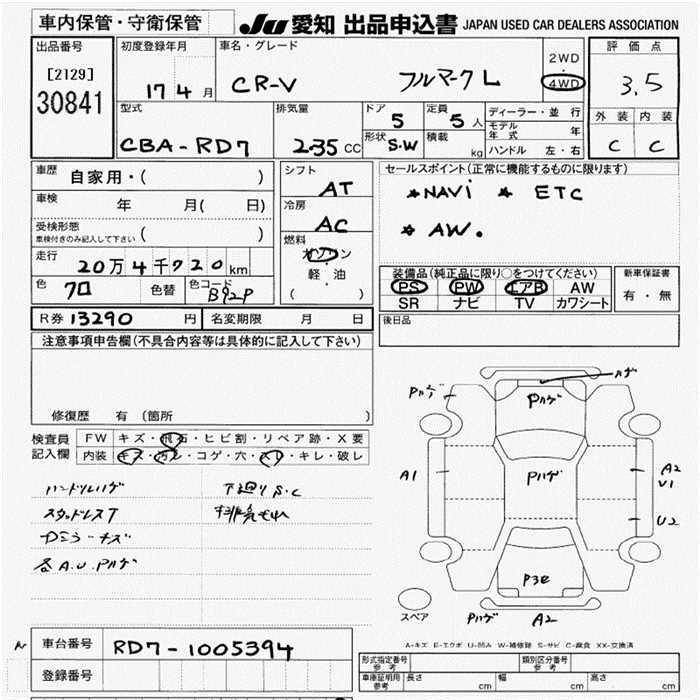 車内保管・守衛保管
JU 愛知 出品申込書 JAPAN USED CAR DEALERS ASSOCIATION
出品番号
[2129]
30841
初度登録年月
17 4 月
車名・グレード
CR-V フルマーク L
2WD
・
4WD
評価点
3.5
外装 内装
C C
型式
CBA-RD7
排気量
2.35 CC
ドア
5
形状
S.W
定員
5 人
積載
kg
ディーラー・並行
モデル年式 年
ハンドル 左・右
車歴
自家用・( )
車検
年 月( 日)
受検形態
車検付きのみ記入して下さい ( )
走行
20万4千720km
色
クロ
色替
色コード
B92P
シフト
AT
冷房
AC
燃料
ガソリン
軽・油
( )
セールスポイント(正常に機能するものに限ります)
★NAVi ★ ETC
★ AW.
装備品(純正品に限り○をつけてください)
PS PW エアB AW
SR ナビ TV カワシート
新車保証書
有・無
R券 13290 円
名変期限 月 日
後日品
注意事項申告欄(不具合内容等は具体的に記入して下さい)
修復歴 有 (箇所 )
検査員
記入欄
FW キズ・飛石・ヒビ割・リペア跡・X要
内装 キズ・汚レ・コゲ・穴・スリ・キレ・破レ
ハンドルハゲ
下廻りS.C
スタッドレスT
排気もれ
各A.U.Pハゲ
Pハゲ
ハゲ
Pハゲ
A1
Pハゲ
A2
V1
U2
P3e
スペア
Pハゲ
A2
A-キズ E-エクボ U-凹み W-補修跡 S-サビ C-腐食 XX-交換済
車台番号
RD7-1005394
登録番号
形式指定番号
参考
類別区分番号
参考
車庫証明用
参考
長さ cm
幅 cm
高さ cm